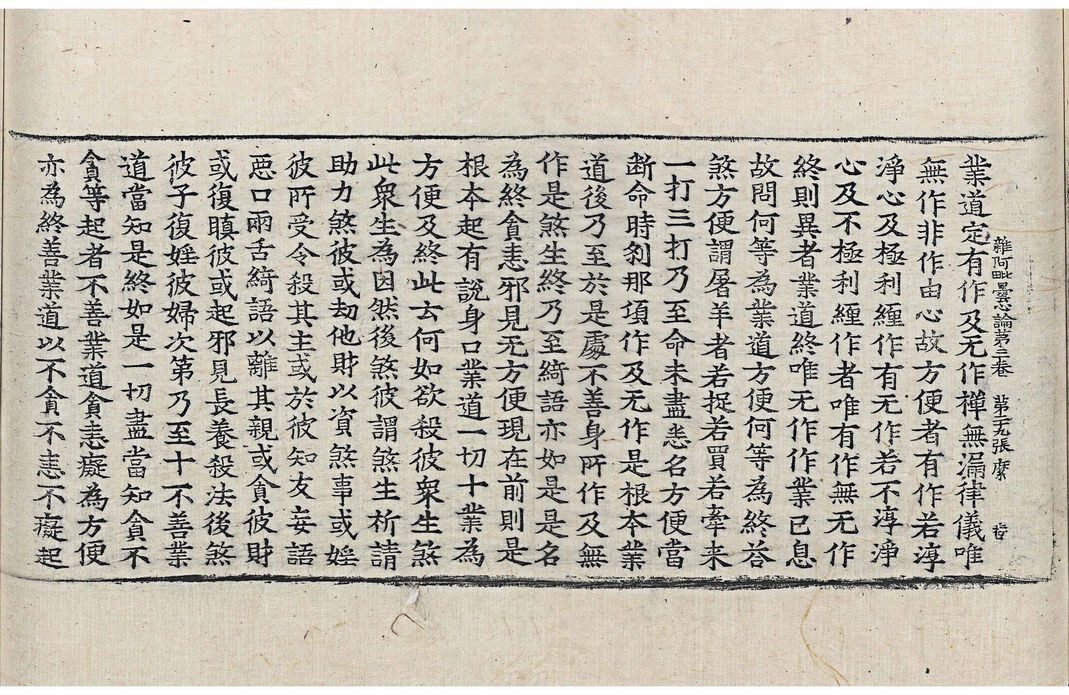 雜阿毗曇心論第三卷　第三九張　麋
業道定有作及无作禪無漏律儀唯
無作非作由心故方便者有作若淳
淨心及極利纏作有无作若不淳淨
心及不極利纏作者唯有作無无作
終則異者業道終唯无作作業已息
故問何等為業道方便何等為終荅
煞方便謂屠羊者若捉若買若牽来
一打三打乃至命未盡悉名方便當
断命時剎那項作及无作是根本業
道後乃至於是處不善身所作及無
作是煞生終乃至綺語亦如是是名
為終貪恚邪見无方便現在前則是
根本起有說身口業道一切十業為
方便及終此去何如欲殺彼衆生煞
此衆生為因然後煞彼謂煞生祈請
助力煞彼或劫他財以資煞事或婬
彼所受令殺其主或於彼知友妄語
惡口兩舌綺語以離其親或貪彼財
或復瞋彼或起邪見長養殺法後煞
彼子復婬彼婦次第乃至十不善業
道當知是終如是一切盡當知貪不
貪等起者不善業道貪恚癡為方便
亦為終善業道以不貪不恚不癡起